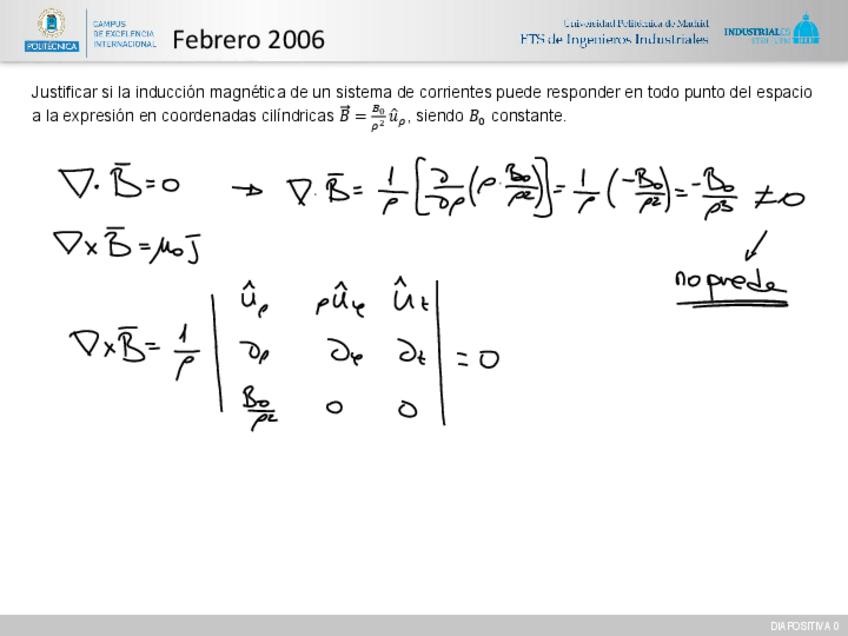 POLITÉCNICA
CAMPUS
DE EXCELENCIA
INTERNACIONAL
Febrero 2006
Universidad Politécnica de Madrid
ETS de Ingenieros Industriales
INDUSTRIALES
Justificar si la inducción magnética de un sistema de corrientes puede responder en todo punto del espacio
a la expresión en coordenadas cilíndricas B⃗ = B₀/ρ² û_ρ, siendo B₀ constante.
∇·B̄=0 → ∇·B̄ = 1/ρ [∂/∂ρ (ρ·B₀/ρ²)] = 1/ρ (-B₀/ρ²) = -B₀/ρ³ ≠0
∇×B̄=μ₀J̄
no puede
∇×B̄= 1/ρ | û_ρ ρû_φ û_z |
| ∂_ρ ∂_φ ∂_z | = 0
| B₀/ρ² 0 0 |
DIAPOSITIVA 0